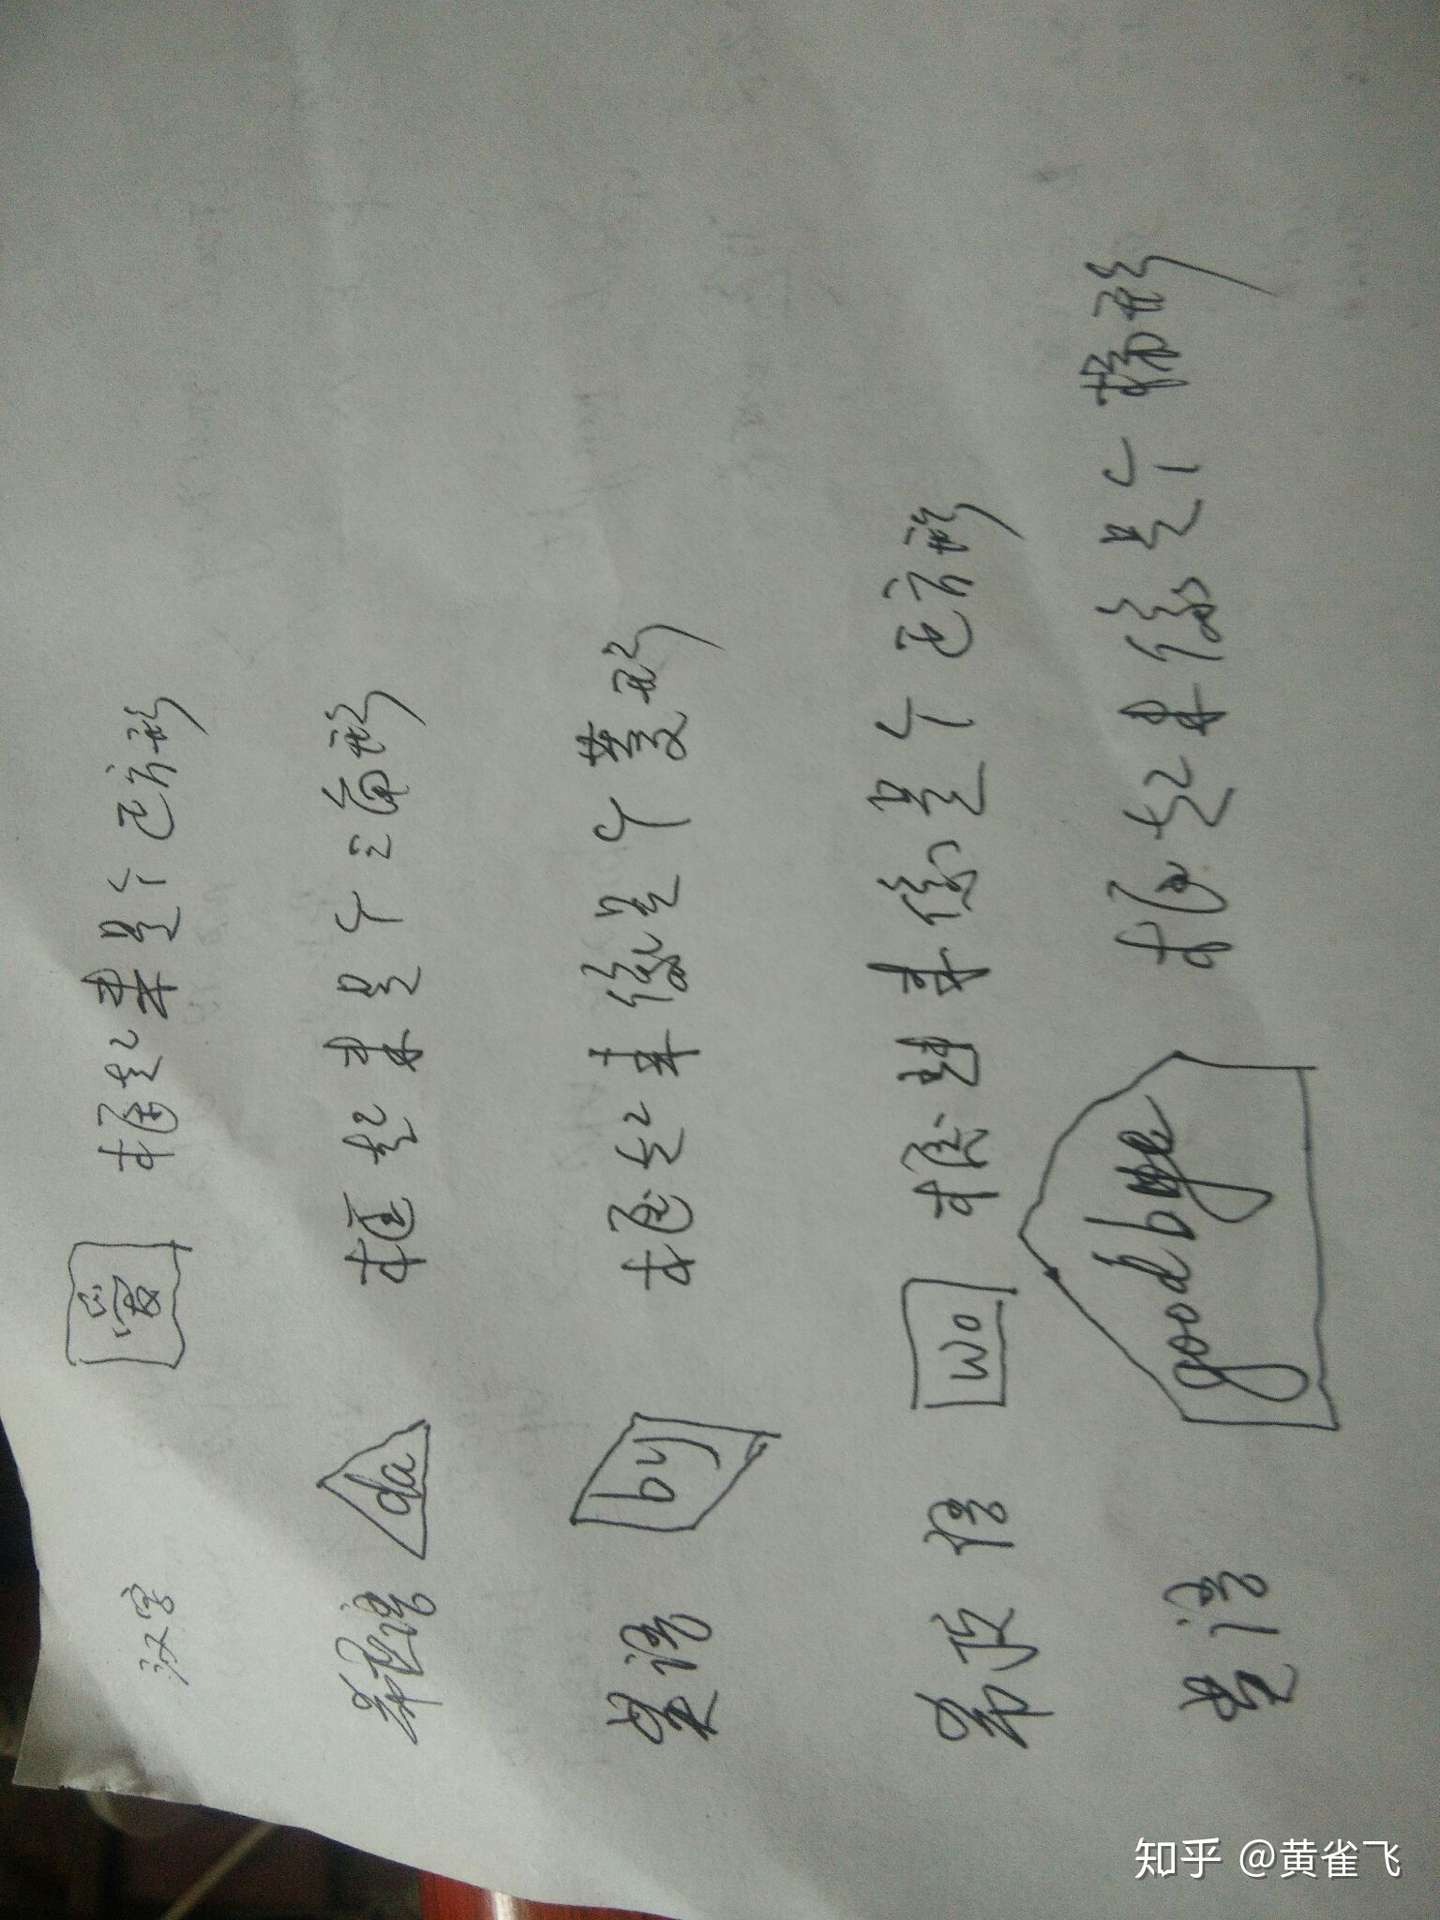 汉字 爱 框起来是个正方形
da 框起来是个三角形
英语 by 框起来像是个菱形
wo 框起来像是个正方形
英语 goodbye 框起来像是个梯形
知乎 @黄雀飞